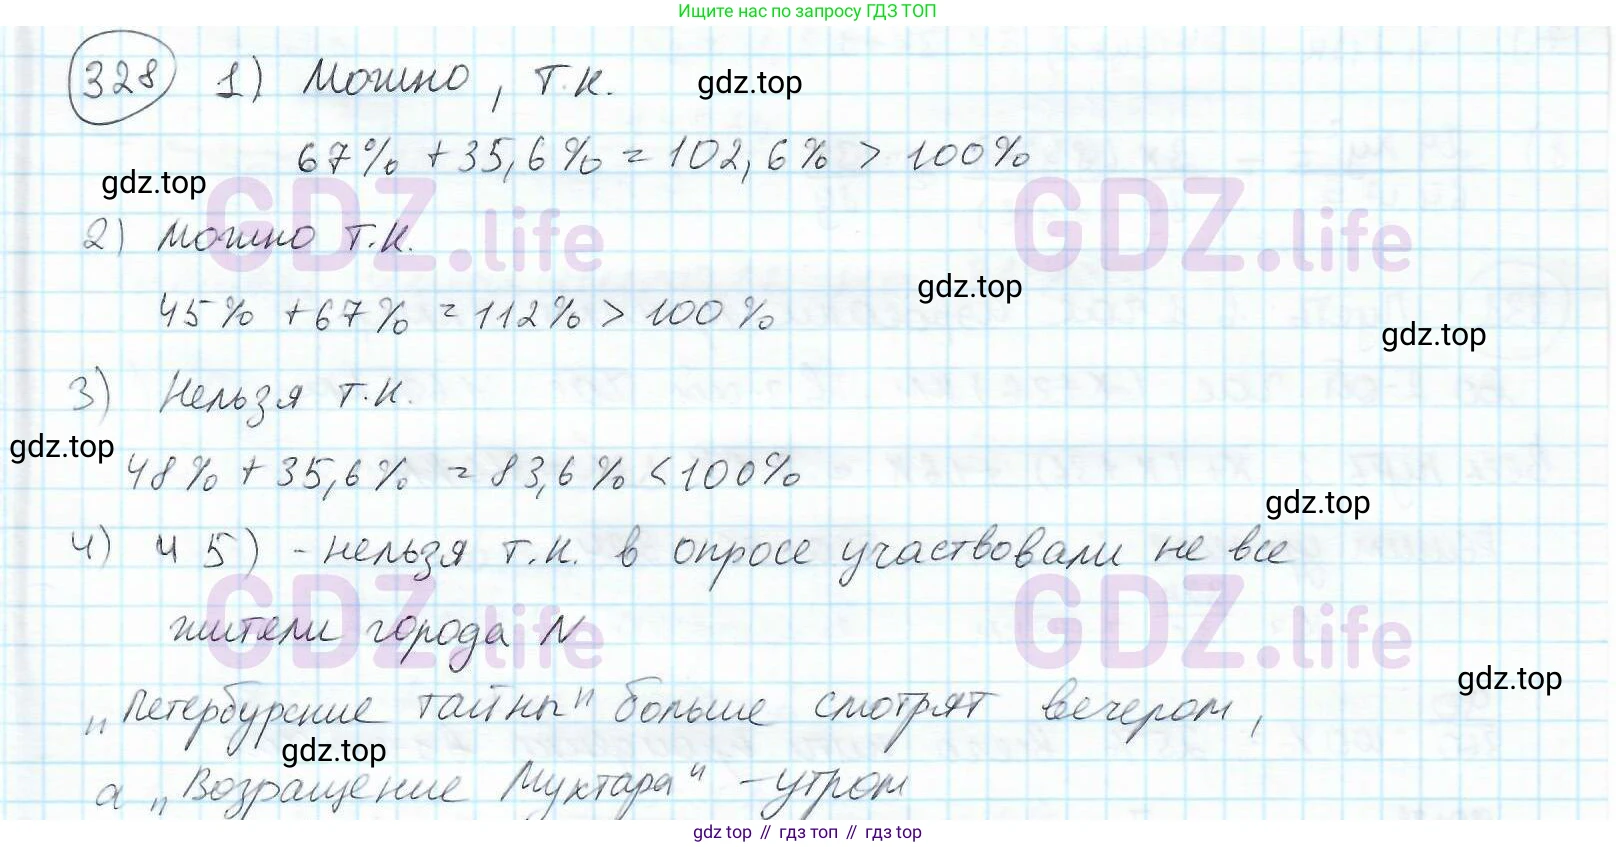 Ищите нас по запросу ГДЗ ТОП
328 1) Можно, т.к. gdz.top
67% + 35,6% = 102,6% > 100%
gdz.top
GDZ.life GDZ.life
2) Можно т.к.
gdz.top
45% + 67% = 112% > 100%
gdz.top
3) Нельзя т.к.
gdz.top
48% + 35,6% = 83,6% < 100%
gdz.top
4) и 5) - нельзя т.к. в опросе участвовали не все
GDZ.life GDZ.life
жители города N
gdz.top
"Петербурские тайны" больше смотрят вечером,
gdz.top
а "Возращение Муктара" - утром
gdz top // гдз топ // гдз top